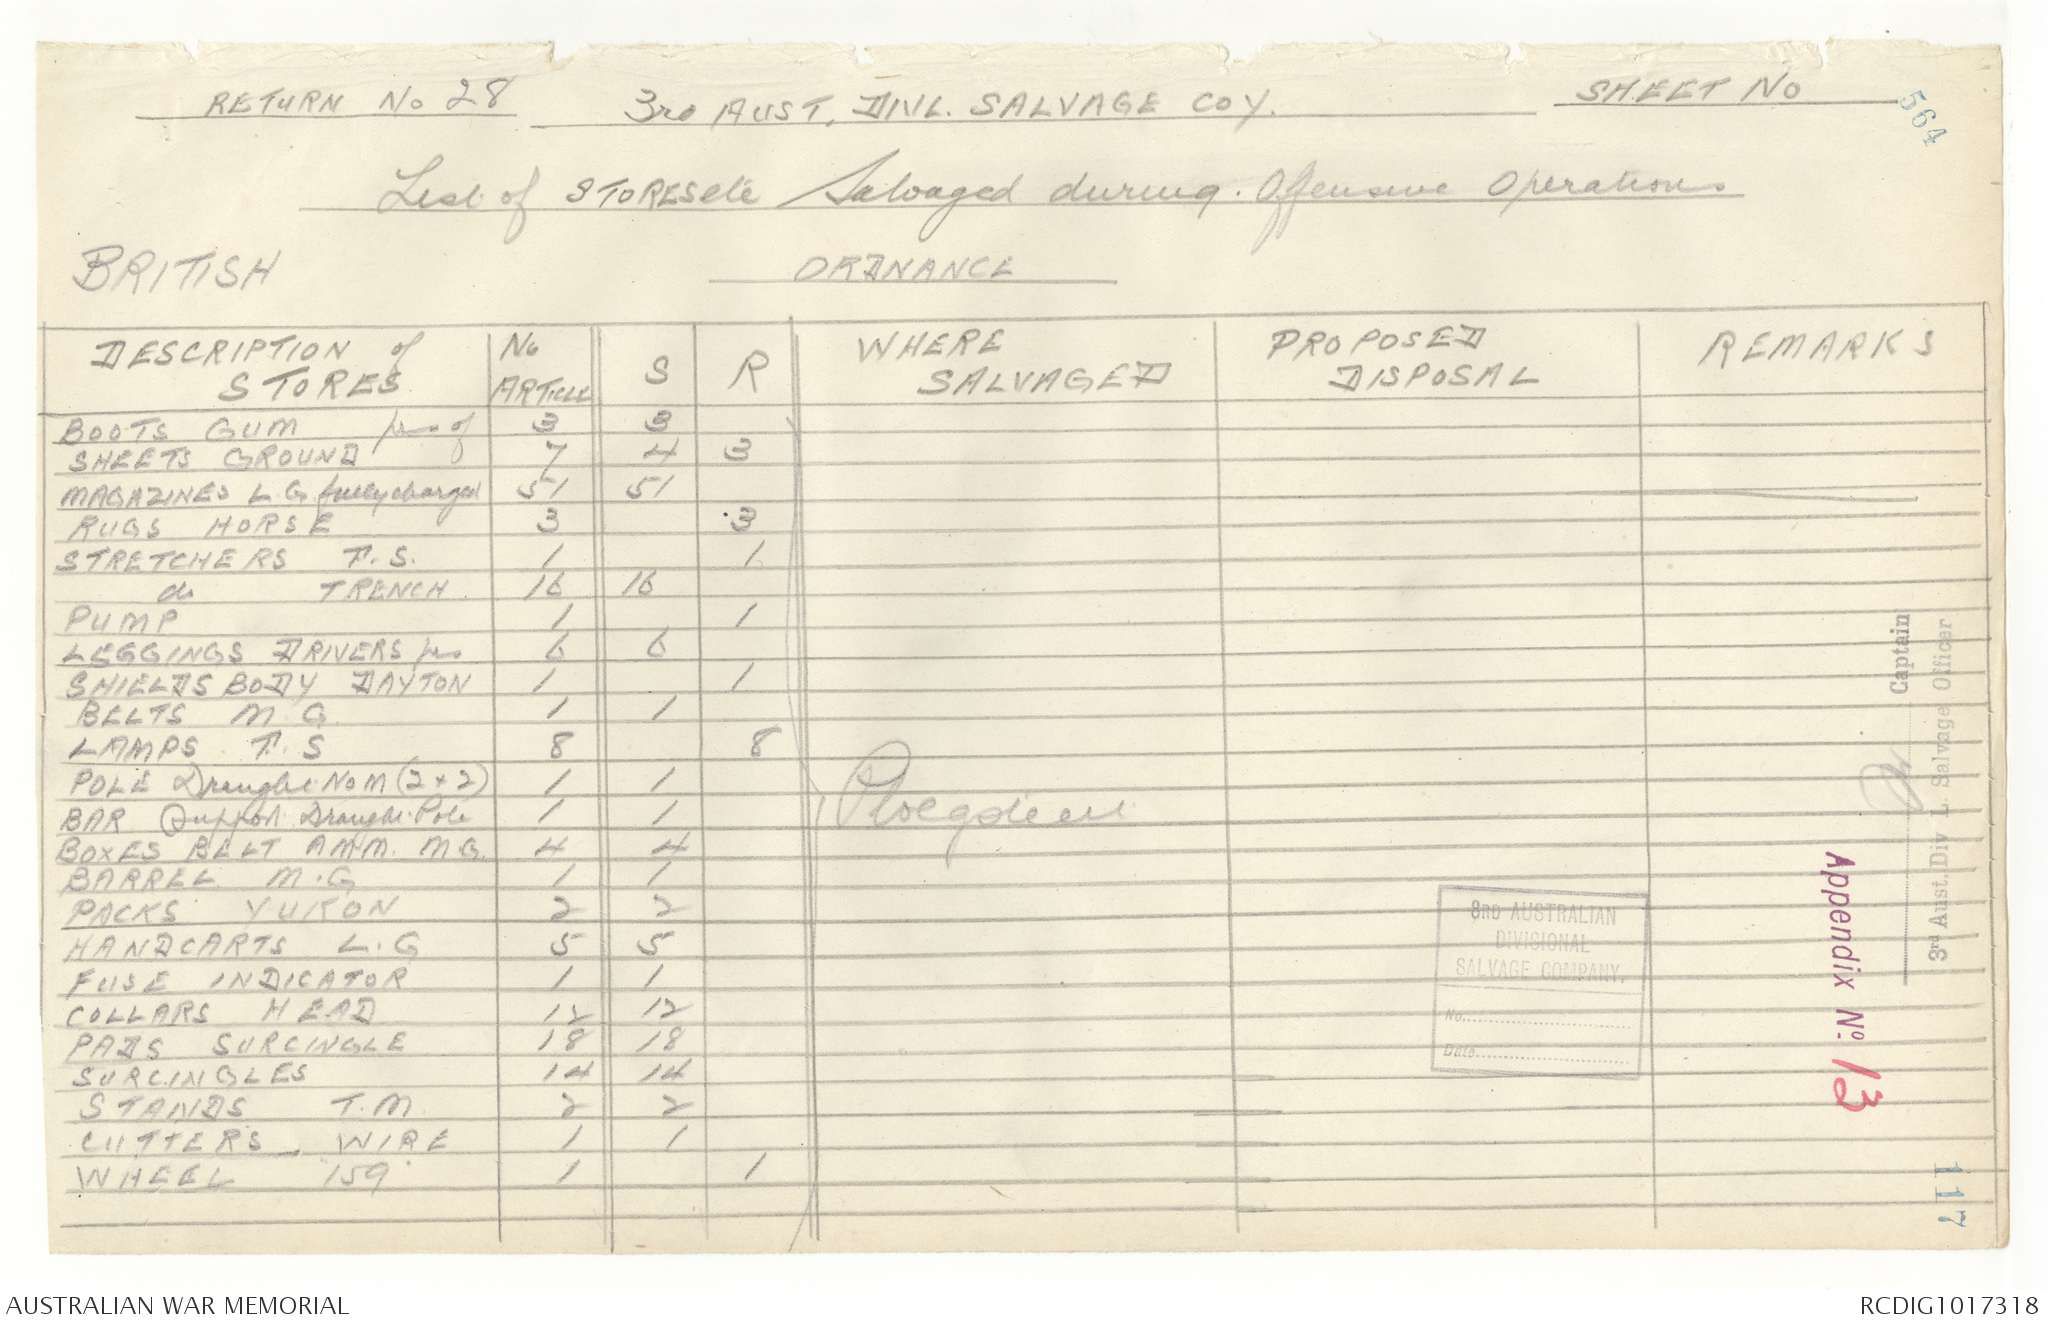 RETURN No 28 3RD AUST. DIVL. SALVAGE COY. SHEET No
564
List of STORES etc Salvaged during Offensive Operations
BRITISH ORDNANCE
DESCRIPTION of STORES No ARTICLE S R WHERE SALVAGED PROPOSED DISPOSAL REMARKS
BOOTS GUM prs of 3 3
SHEETS GROUND 7 4 3
MAGAZINES L.G. fully charged 51 51
RUGS HORSE 3 3
STRETCHERS F.S. 1 1
do TRENCH 16 16
PUMP 1 1
LEGGINGS DRIVERS prs 6 6
SHIELDS BODY DAYTON 1 1
BELTS M.G 1 1
LAMPS F.S 8 8
POLE Draught No M (2 + 2) 1 1
BAR Support Draught Pole 1 1
Ploegsteert
BOXES BELT AMM. M.G. 4 4
BARREL M.G 1 1
PACKS YUKON 2 2
HANDCARTS L.G 5 5
FUSE INDICATOR 1 1
COLLARS HEAD 12 12
PADS SURCINGLE 18 18
SURCINGLES 14 14
STANDS T.M. 2 2
CUTTERS WIRE 1 1
WHEEL 159 1 1
3RD AUSTRALIAN
DIVISIONAL
SALVAGE COMPANY.
No.
Date
Captain
3rd Aust. Div L. Salvage Officer
Appendix No. 13
117
AUSTRALIAN WAR MEMORIAL RCDIG1017318